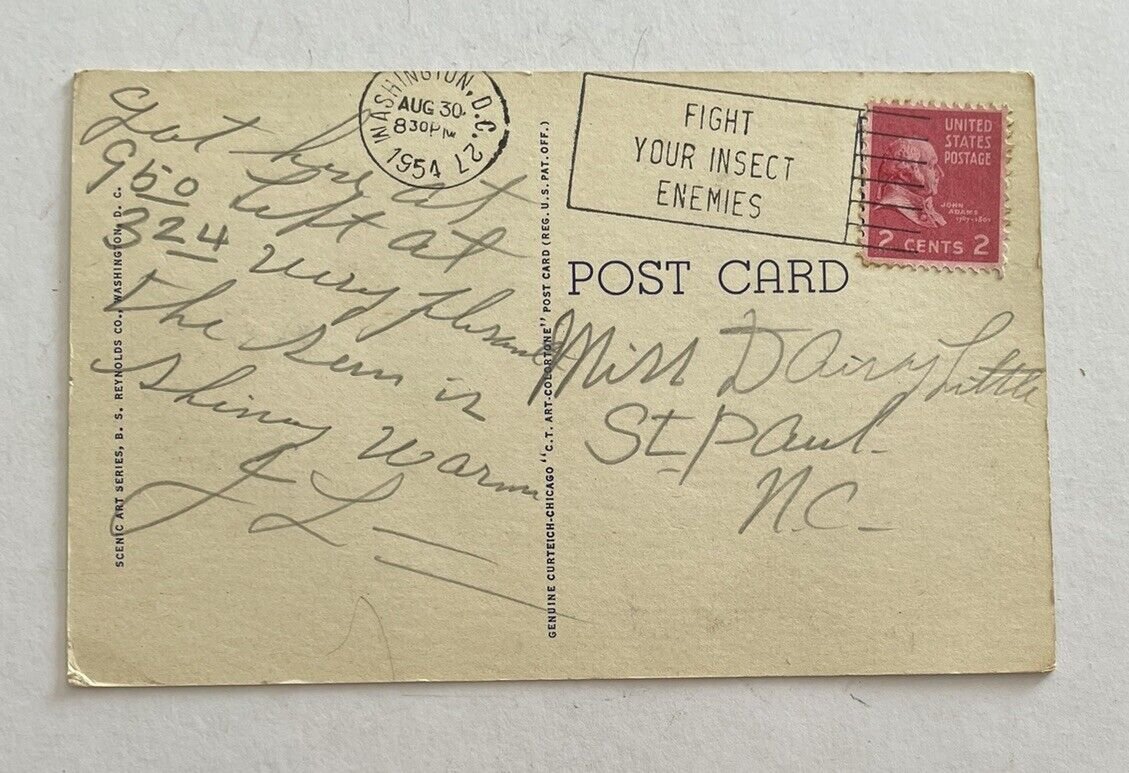 WASHINGTON, D.C. 27
AUG 30
8 30 PM
1954
FIGHT
YOUR INSECT
ENEMIES
UNITED
STATES
POSTAGE
JOHN
ADAMS
1797-1801
2 CENTS 2
POST CARD
Got here at
9 50 left at
3 24 very plesant
the sun is
shiny warm
J L
Miss Dairy Little
St. Paul
N.C.
SCENIC ART SERIES, B. S. REYNOLDS CO., WASHINGTON, D. C.
GENUINE CURTEICH-CHICAGO "C.T. ART-COLORTONE" POST CARD (REG. U.S. PAT. OFF.)